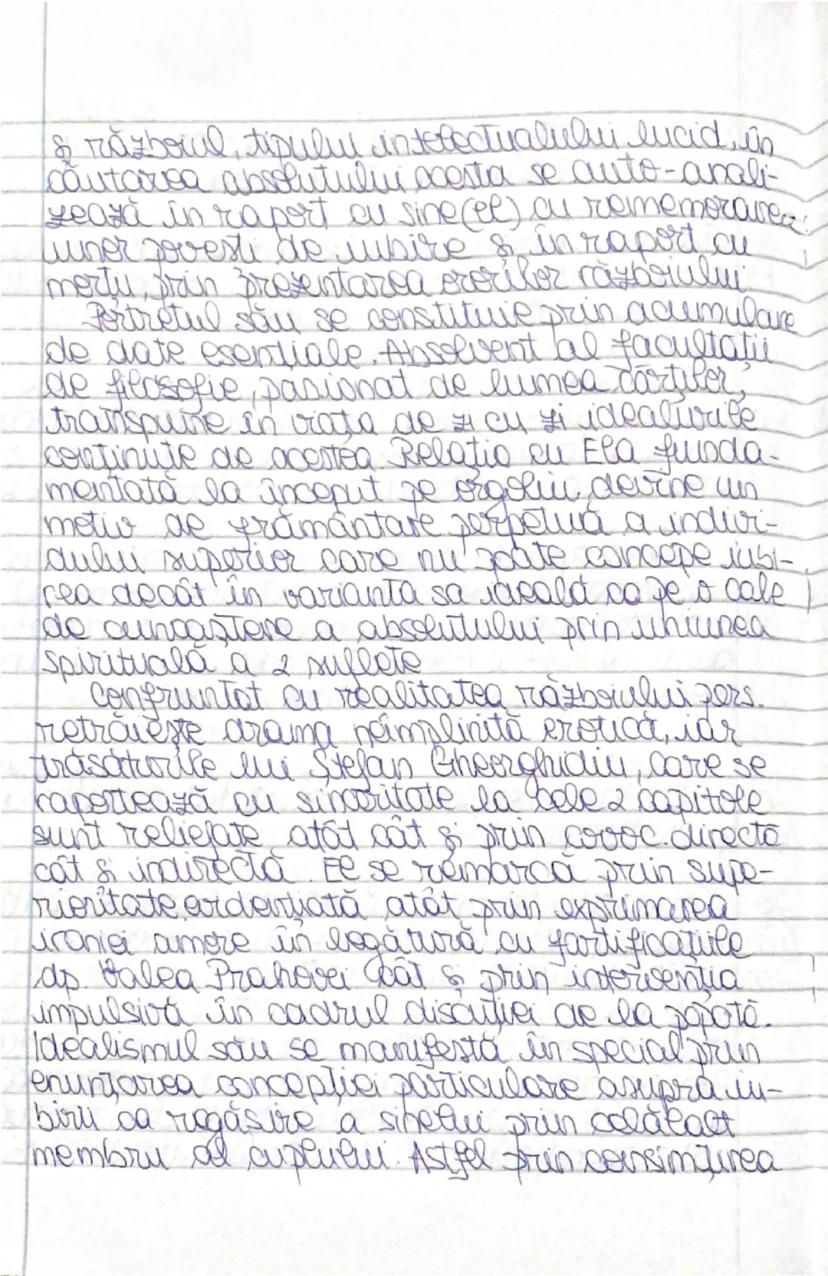 și războiul, tipului intelectualului lucid, în
căutarea absolutului acesta se auto-anali-
zează în raport cu sine (el) cu rememorarea
unei povești de iubire și în raport cu
prin prezentarea ororilor războiului
Portretul său se constituie prin acumulare
de date esențiale. Absolvent al facultății
de filosofie, pasionat de lumea cărților,
transpune în viața de zi cu zi idealurile
conținute de acestea Relația cu Ela funda-
mentată la început pe orgoliu, devine un
motiv de frământare perpetuă a indivi-
dului superior care nu poate concepe iubi-
rea decât în varianta sa ideală ca pe o cale
de cunoaștere a absolutului prin uniunea
spirituală a 2 suflete
Confruntat cu realitatea războiului pers.
retrăiește drama neîmplinită erotică, iar
trăsăturile lui Ștefan Gheorghidiu, care se
raportează cu sinceritate la cele 2 capitole
sunt reliefate atât cât și prin directă
cât și indirectă. El se remarcă prin supe-
rioritate evidențiată atât prin exprimarea
ironiei amare în legătură cu fortificațiile
dp. Valea Prahovei cât și prin intervenția
impulsivă în cadrul discuției de la popotă.
Idealismul său se manifestă în special prin
enunțarea concepției particulare asupra iu-
birii ca regăsire a sinelui prin celălalt
membru al cuplului. Astfel prin consimțirea